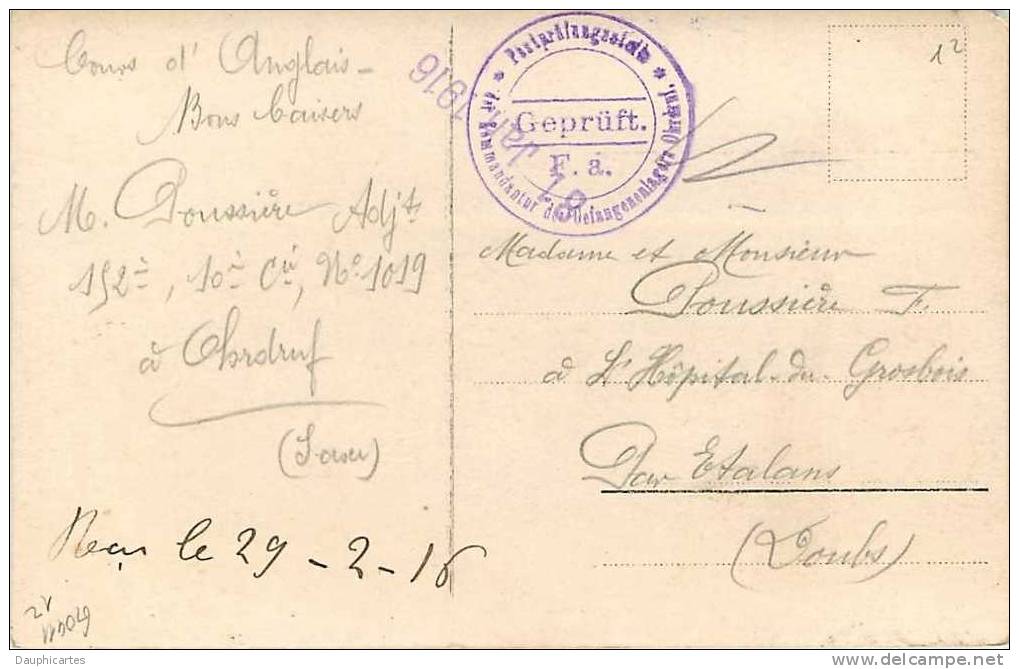 Cours d'Anglais -
Bons baisers
M. Poussière Adjt
152è, 10è Cie, No 1019
à Ohrdruf
Reçu le 29 - 2 - 16
* Postprüfungsstelle *
der Kommandantur des Gefangenenlagers Ohrdruf.
Geprüft.
F. a.
18 Jan. 1916
12
Madame et Monsieur
Poussière F.
à L'Hôpital-du-Grosbois
Par Etalans
(Doubs)
Dauphicartes
www.delcampe.net